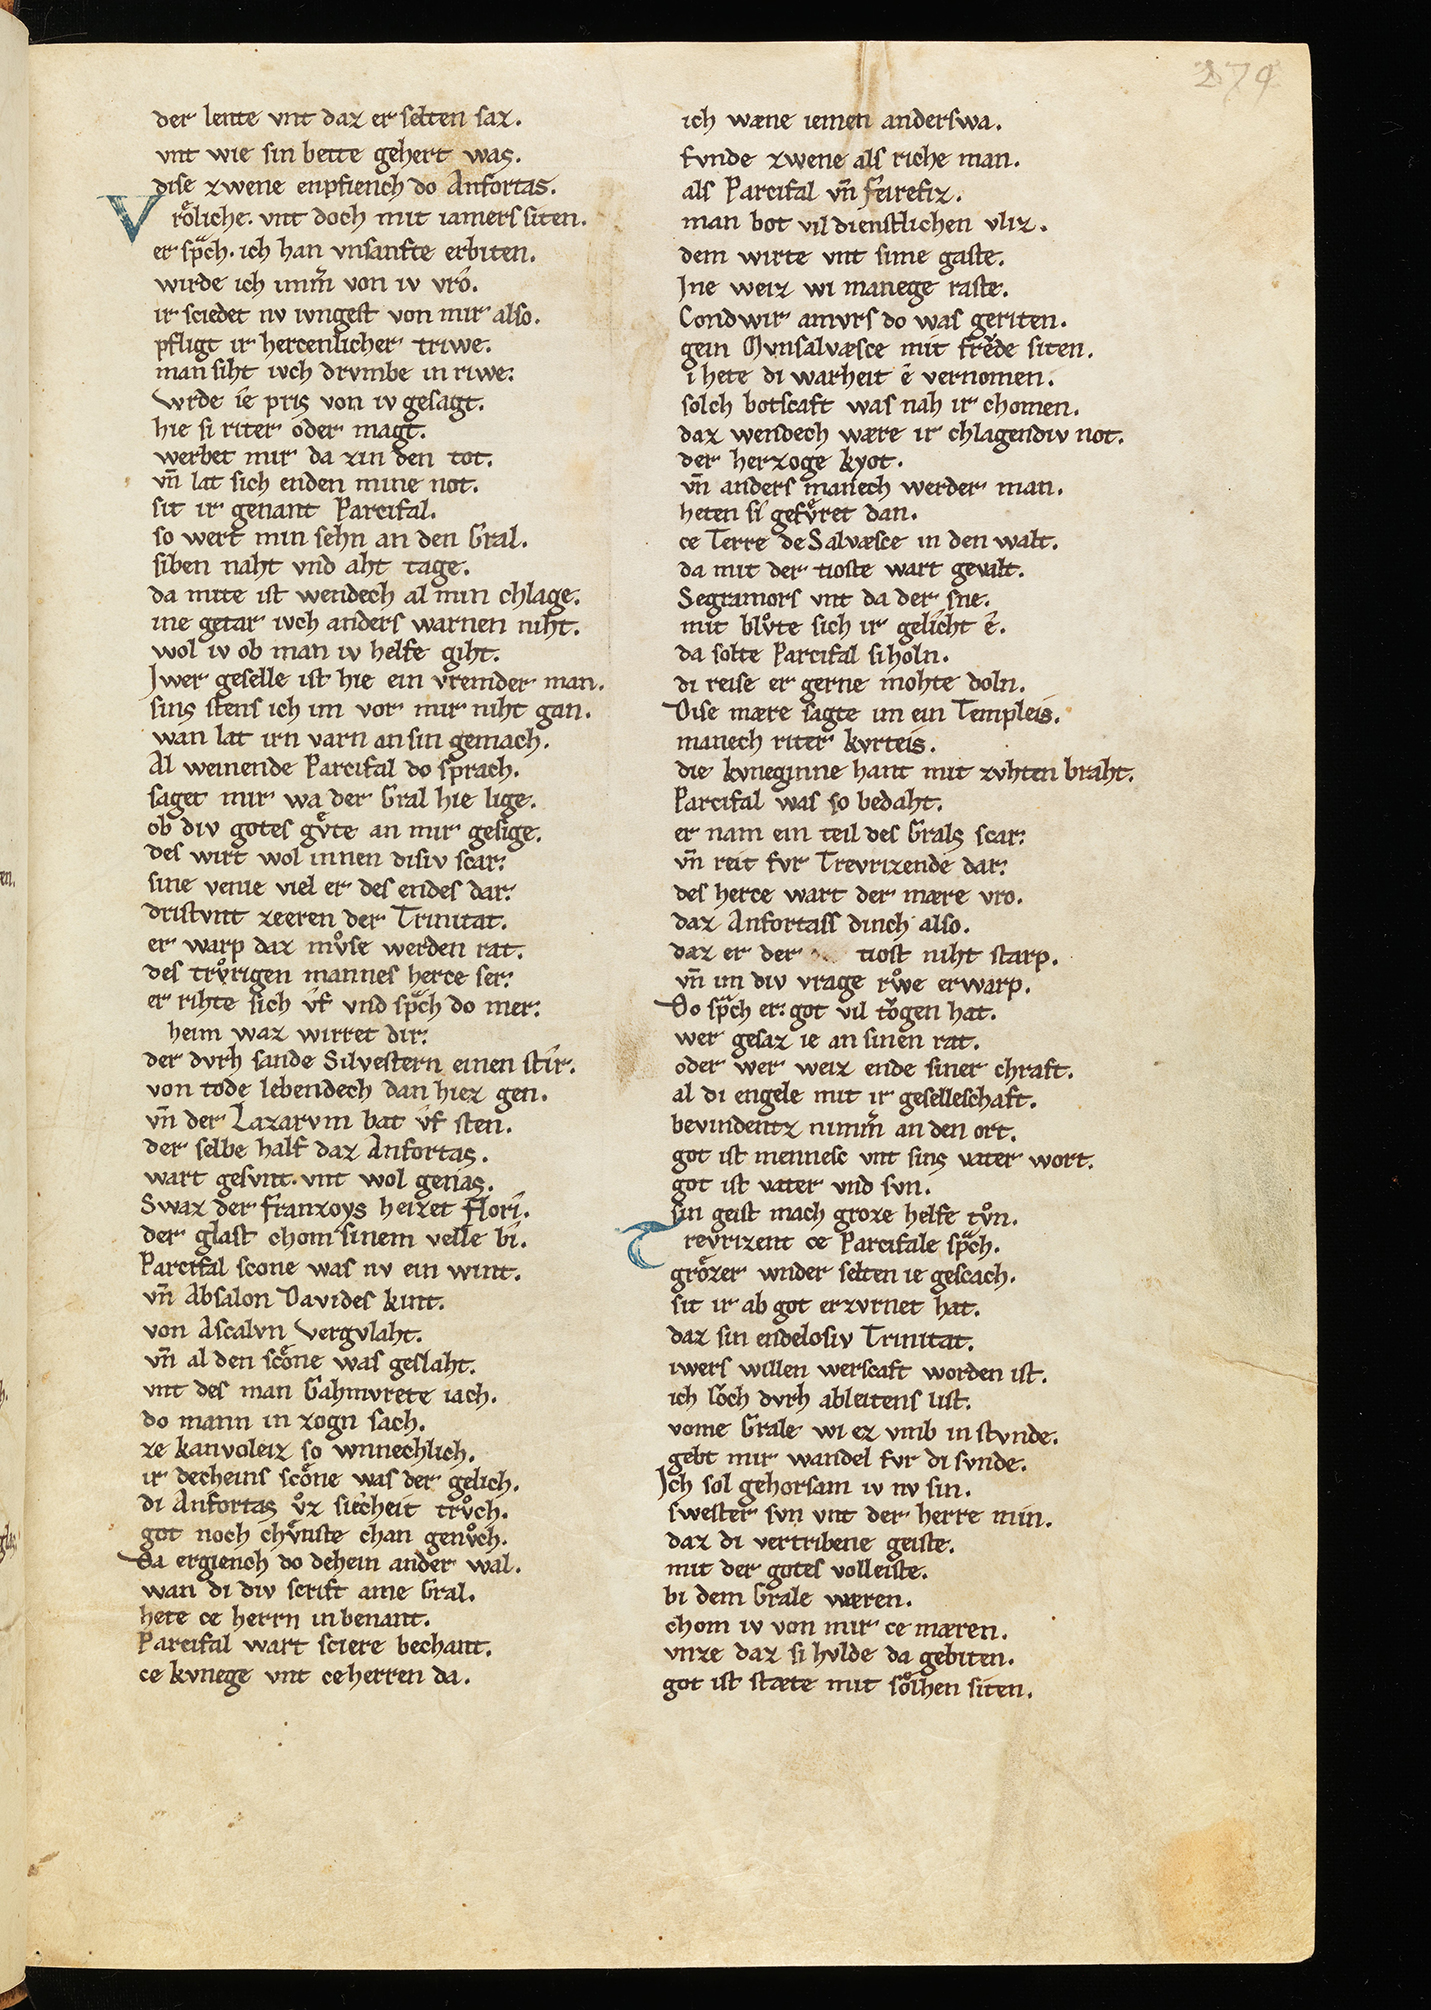 274
der lente vnt daz er selten saz.
vnt wie sin bette gehert was.
dise zwene enpfiench do Anfortas.
Vrͦoliche. vnt doch mit iamers siten.
er sp̄ch. ich han vnsanfte erbiten.
wirde ich imm̄ von iv vro.
ir sciedet nv ivngest von mir also.
pfligt ir hercenlicher triwe.
man siht ivch drvmbe in riwe.
wrde ie pris von iv gesagt.
hie si riter oder magt.
werbet mir da zin den tot.
vn̄ lat sich enden mine not.
sit ir genant Parcifal.
so wert min sehn an den Gral.
siben naht vnd aht tage.
da mite ist wendech al min chlage.
ine getar ivch anders warnen niht.
wol iv ob man iv helfe giht.
Iwer geselle ist hie ein vremder man.
sins stens ich im vor mir niht gan.
wan lat irn varn an sin gemach.
Al weinende Parcifal do sprach.
saget mir wa der Gral hie lige.
ob div gotes gv̊te an mir gesige.
des wirt wol innen disiv scar.
sine venie viel er des endes dar.
dristvnt zeeren der Trinitat.
er warp daz mv̊se werden rat.
des trv̊rigen mannes herce ser.
er rihte sich v̂f vnd sp̄ch do mer.
heim waz wirret dir.
der dvrh sande Silvestern einen stîr.
von tode lebendech dan hiez gen.
vn̄ der Lazarvm bat v̂f sten.
der selbe half daz Anfortas.
wart gesvnt. vnt wol genas.
Swaz der franzoys heizet flori.
der glast chom sinem velle bi.
Parcifal scone was nv ein wint.
vn̄ Absalon Davides kint.
von Ascalvn Vergvlaht.
vn̄ al den scͦone was geslaht.
vnt des man Gahmvrete iach.
do mann in zogn sach.
ze kanvoleiz so wnnechlich.
ir decheins scͦone was der gelich.
di Anfortas v̊z siecheit trv̊ch.
got noch chv̊nste chan genv̊ch.
Da ergiench do dehein ander wal.
wan di div scrift ame Gral.
hete ce herrn in benant.
Parcifal wart sciere bechant.
ce kvnege vnt ce herren da.
ich wæne iemen anderswa.
fvnde zwene als riche man.
als Parcifal vn̄ feirefiz.
man bot vil dienstlichen vliz.
dem wirte vnt sime gaste.
Ine weiz wi manege raste.
Condwir amvrs do was geriten.
gein Mvnsalvæsce mit frͤede siten.
i hete di warheit ê vernomen.
solch botscaft was nah ir chomen.
daz wendech wære ir chlagendiv not.
der herzoge kyot.
vn̄ anders manech werder man.
heten si gefv̊ret dan.
ce Terre de Salvæsce in den walt.
da mit der tioste wart gevalt.
Segramors vnt da der sne.
mit blv̊te sich ir gelicht ê.
da solte Parcifal si holn.
di reise er gerne mohte doln.
Dise mære sagte im ein Templeis.
manech riter kvrteis.
die kvneginne hant mit zvhten braht.
Parcifal was so bedaht.
er nam ein teil des Grals scar.
vn̄ reit fvr Trevrizende dar.
des herce wart der mære vro.
daz Anfortass dinch also.
daz er der tiost niht starp.
vn̄ im div vrage rv̊we erwarp.
Do sp̄ch er. got vil tͦogen hat.
wer gesaz ie an sinen rat.
oder wer weiz ende siner chraft.
al di engele mit ir geselleschaft.
bevindentz nimm̄ an den ort.
got ist mennesc vnt sins vater wort.
got ist vater vnd svn.
sin geist mach groze helfe tv̊n.
Trevrizent ce Parcifale sp̄ch.
grͦozer wnder selten ie gescach.
sit ir ab got erzvrnet hat.
daz sin endelosiv Trinitat.
iwers willen werscaft worden ist.
ich lͦoch dvrh ableitens list.
vome Grale wi ez vmb in stvnde.
gebt mir wandel fvr di svnde.
Ich sol gehorsam iv nv sin.
swester svn vnt der herre min.
daz di vertribene geiste.
mit der gotes volleiste.
bi dem Grale wæren.
chom iv von mir ce mæren.
vnze daz si hvlde da gebiten.
got ist stæte mit sͦolhen siten.